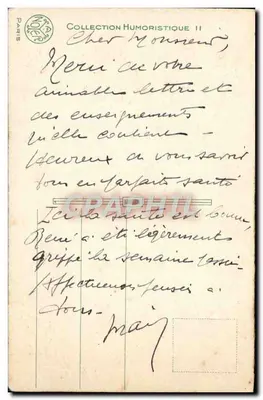 COLLECTION HUMORISTIQUE II
PARIS
Cher Monsieur,
Merci de votre
aimable lettre et
des enseignements
qu'elle contient -
Heureux de vous savoir
tous en parfaite santé
CARAPHIL
Ici la santé est bonne,
René a été légèrement
grippé la semaine passée
Affectueuses pensées à
tous -